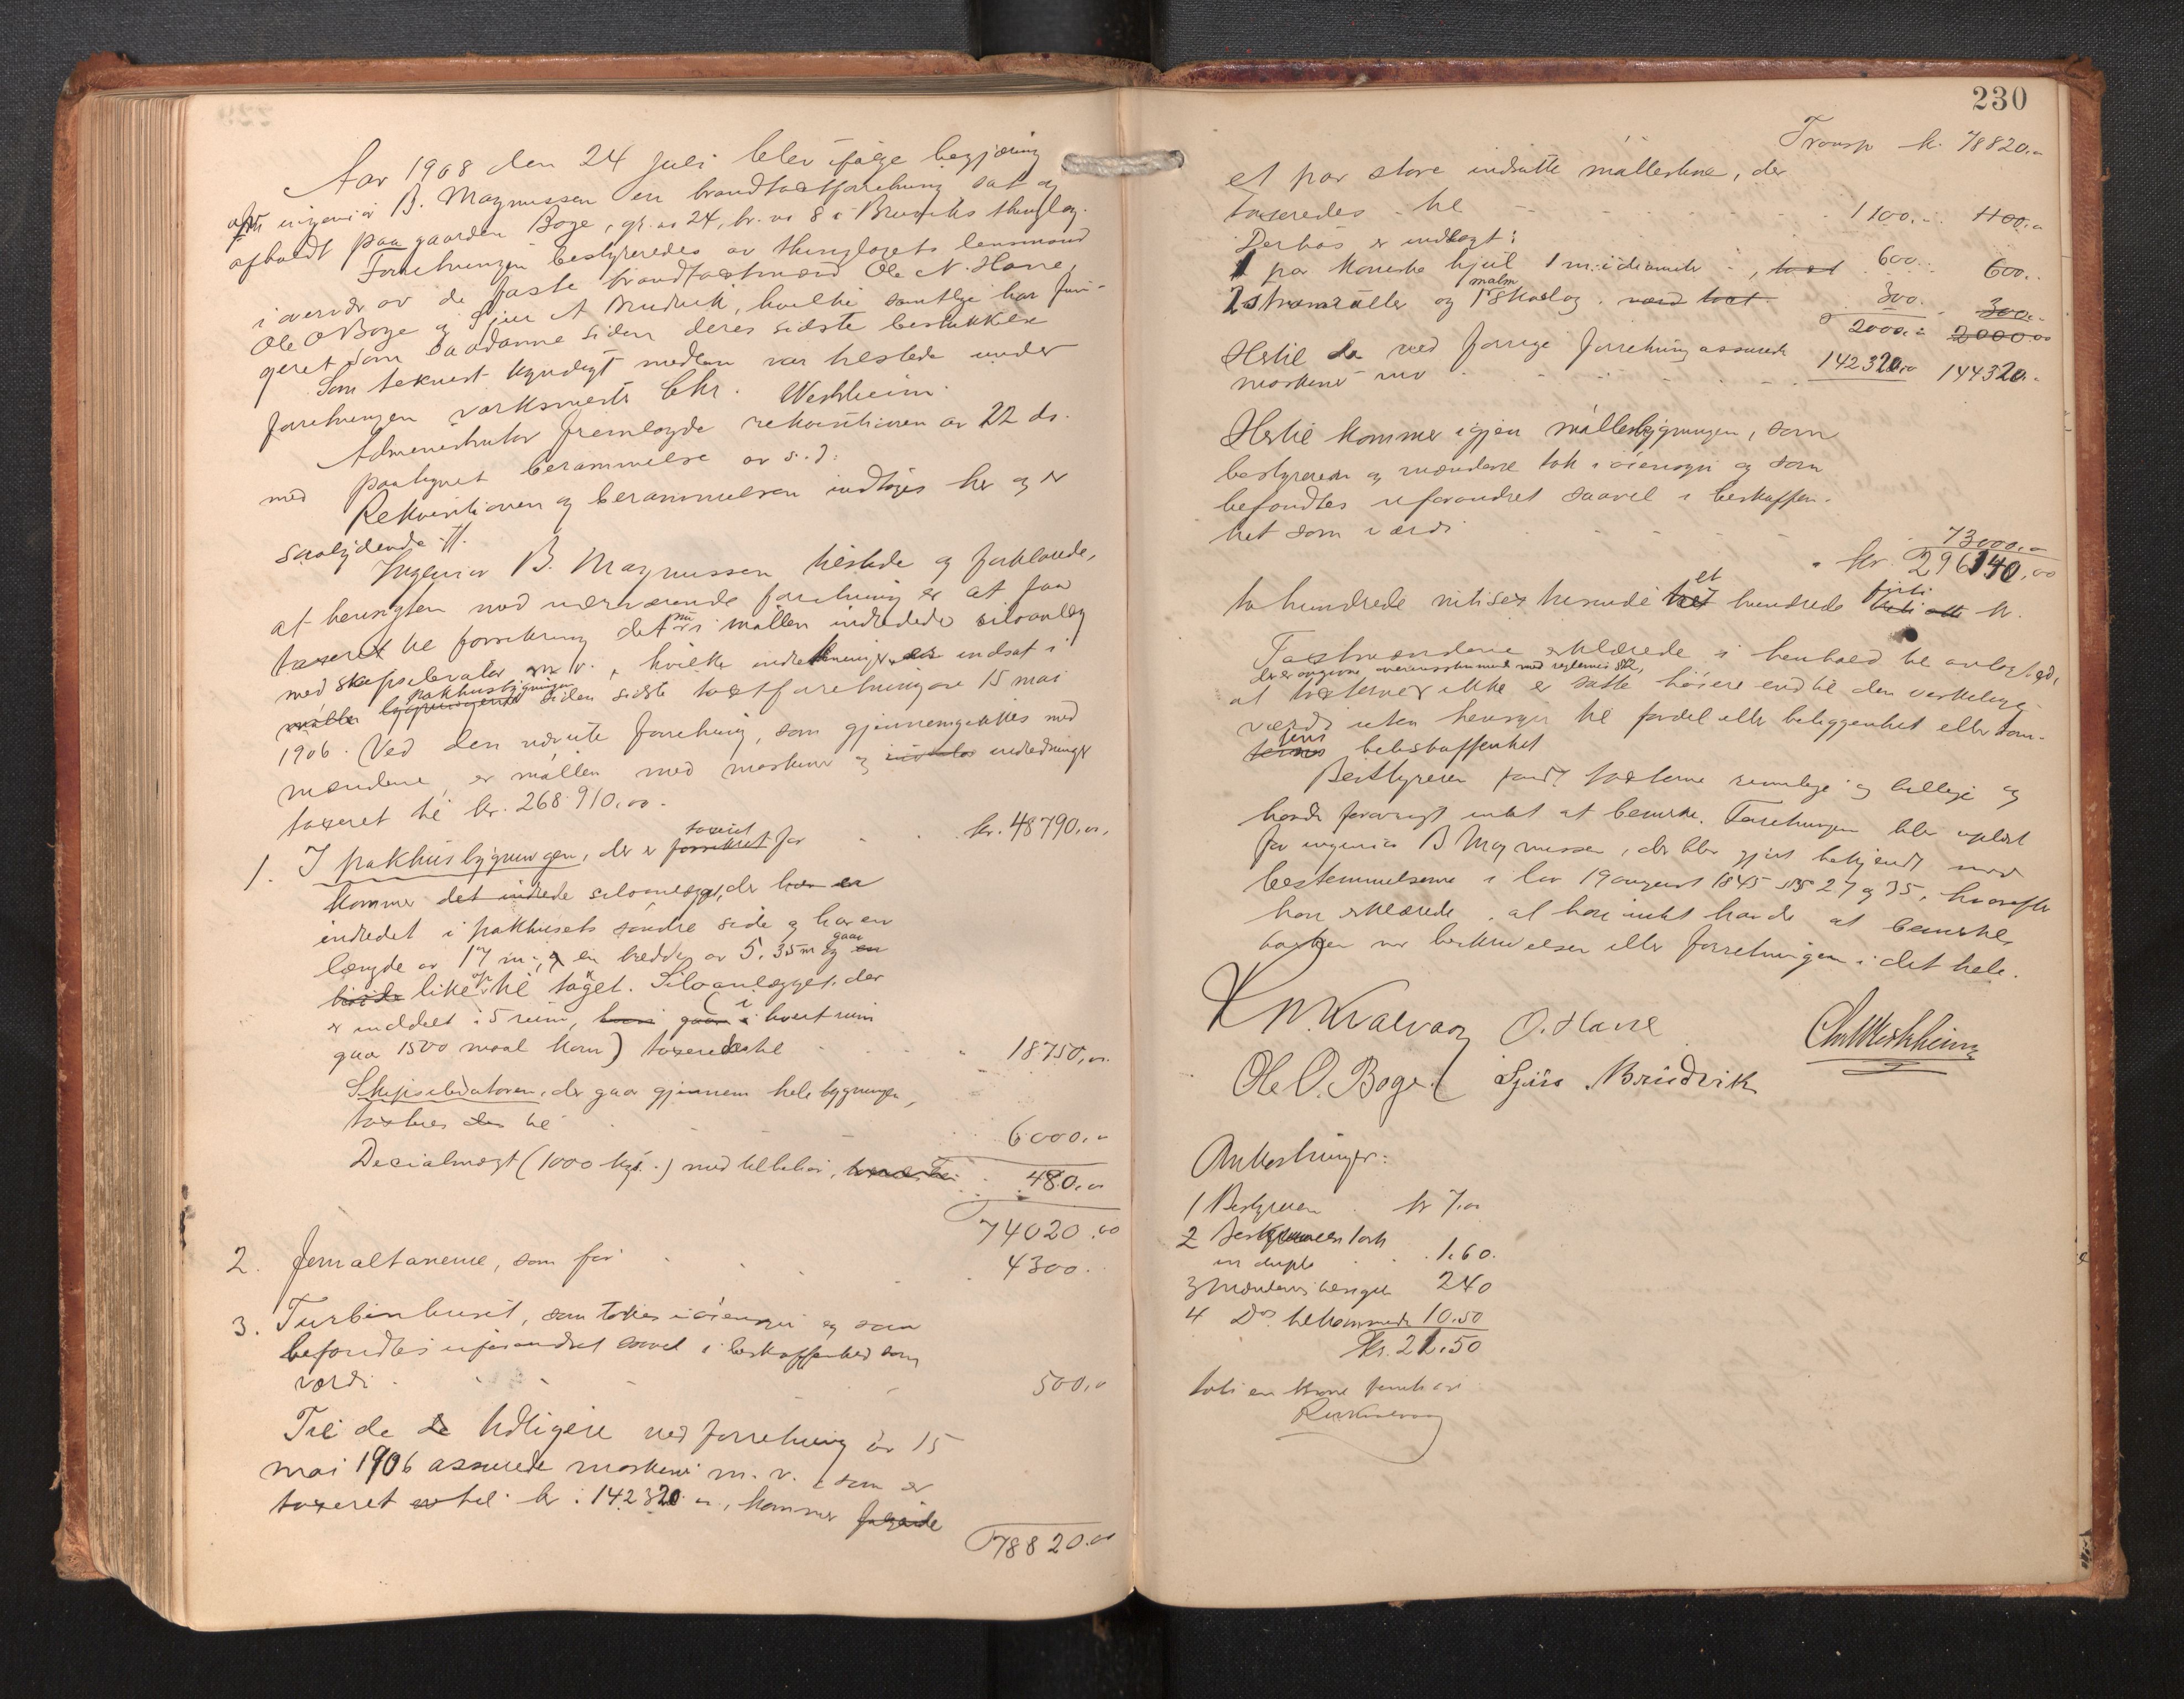 Aar 1908 den 24 juli blev ifølge begjæring
fra ingeniør B. Magnussen en brandtaxtforretning sat og
afholdt paa gaarden Boge, gr. no 24, br. no 8 i Bruviks thinglag.
Forretningen bestyredes av thinglagets lensmand
i overvær av de faste brandtaxtmænd Ole N. Hane,
Ole O Boge og Sjur A Bruvik, hvilke samtlige har fun-
geret som saadanne siden deres sidste beskikkelse
Som teknisk kyndigt medlem var tilstede under
forretningen værksmester Chr. Westrheim.
Administrator fremlagde rekvisitionen av 22 ds.
med paategnet berammelse av s. d.
Rekvisitionen og berammelsen indtages her og er
saalydende //.
Ingeniør B. Magnussen tilstede og forklarede,
at hensigten med nærværende forretning er at faa
taxeret til forsikring det nu i møllen indredede siloanlæg
med skipselevator m. v., hvilke indretninger er indsat i
mølle bygningerne pakhusbygningen siden sidste taxtforretning av 15 mai
1906. Ved den nævnte forretning, som gjennemgikkes med
mændene, er møllen med maskiner og indredninger
taxeret til kr. 268 910,00.
1. I pakhusbygningen, der er forsikret taxeret for kr. 48790,00,
kommer det indrede siloanlæg, der har en
indredet i pakhusets søndre side og har en
længde av 17 m., og en bredde av 5,35 m og en gaar
høide like op til taget. Siloanlægget, der
er inddelt i 5 rum, (i hvert rum
gaar 1500 maal korn) taxeredes til 18750,00.
Skipselevatoren, der gaar gjennem hele bygningen,
taxeres der til 6000,00
Decialvægt (1000 kgr.) med tilbehør, 480,00
74020.00
2. Jernaltanerne, som før 4300.
3. Turbinhuset, som toges i øiensyn og som
befandtes uforandret saavel i beskaffenhed som
værdi 500,00
Til de de tidligere ved forretning av 15
mai 1906 assurerede maskiner m. v. som er
taxeret til kr. 142320 00, kommer følgende
78820.00
230
Transp kr. 78820.00
et par store indsatte møllestene, der
taxeredes til 1100.- 1100.00
Derhos er indlagt:
1 par koniske hjul 1 m. i diameter, taxt 600.- 600.-
2 strømruller og 1 malm skaalag. værd taxt 300. 300.-
2000.- 2000 00
Hertil de ved forrige forretning assurerede
maskiner m v 142320.00 144320.-
Hertil kommer igjen møllebygningen, som
bestyreren og mændene tok i øiensyn og som
befandtes uforandret saavel i beskaffen-
het som i værdi 73000.00
kr. 296140,00
to hundrede nitisex tusende et hundrede firti kr.
Taxtmændene erklærede i henhold til avlagt ed,
der er avgiven overensstemmende med reglernes § 12,
at taxterne ikke er satte høiere end til den verkelige
værdi uten hensyn til fordel eller beliggenhet eller tom-
tens beskaffenhet
Bestyreren fandt taxterne rimelige og billige og
havde forøvrigt intet at bemerke. Forretningen blev oplæst
for ingeniør B Magnussen, der blev gjort bekjendt med
bestemmelserne i lov 19 august 1845 §§ 27 og 35, hvorefter
han erklærede, at han intet havde at bemerke
taxten, beskrivelsen eller forretningen i det hele.
O. Hane
Chr Westrheim
Ole O. Boge Sjur Brudvik
Omkostninger:
1 Bestyreren kr 7.00
2 Beskrivelsen tørk
in duplo 1.60.
3 Mændenes 240
4 Do. tilkommende 10.50
Kr. 21.50
toti en krone femti øre